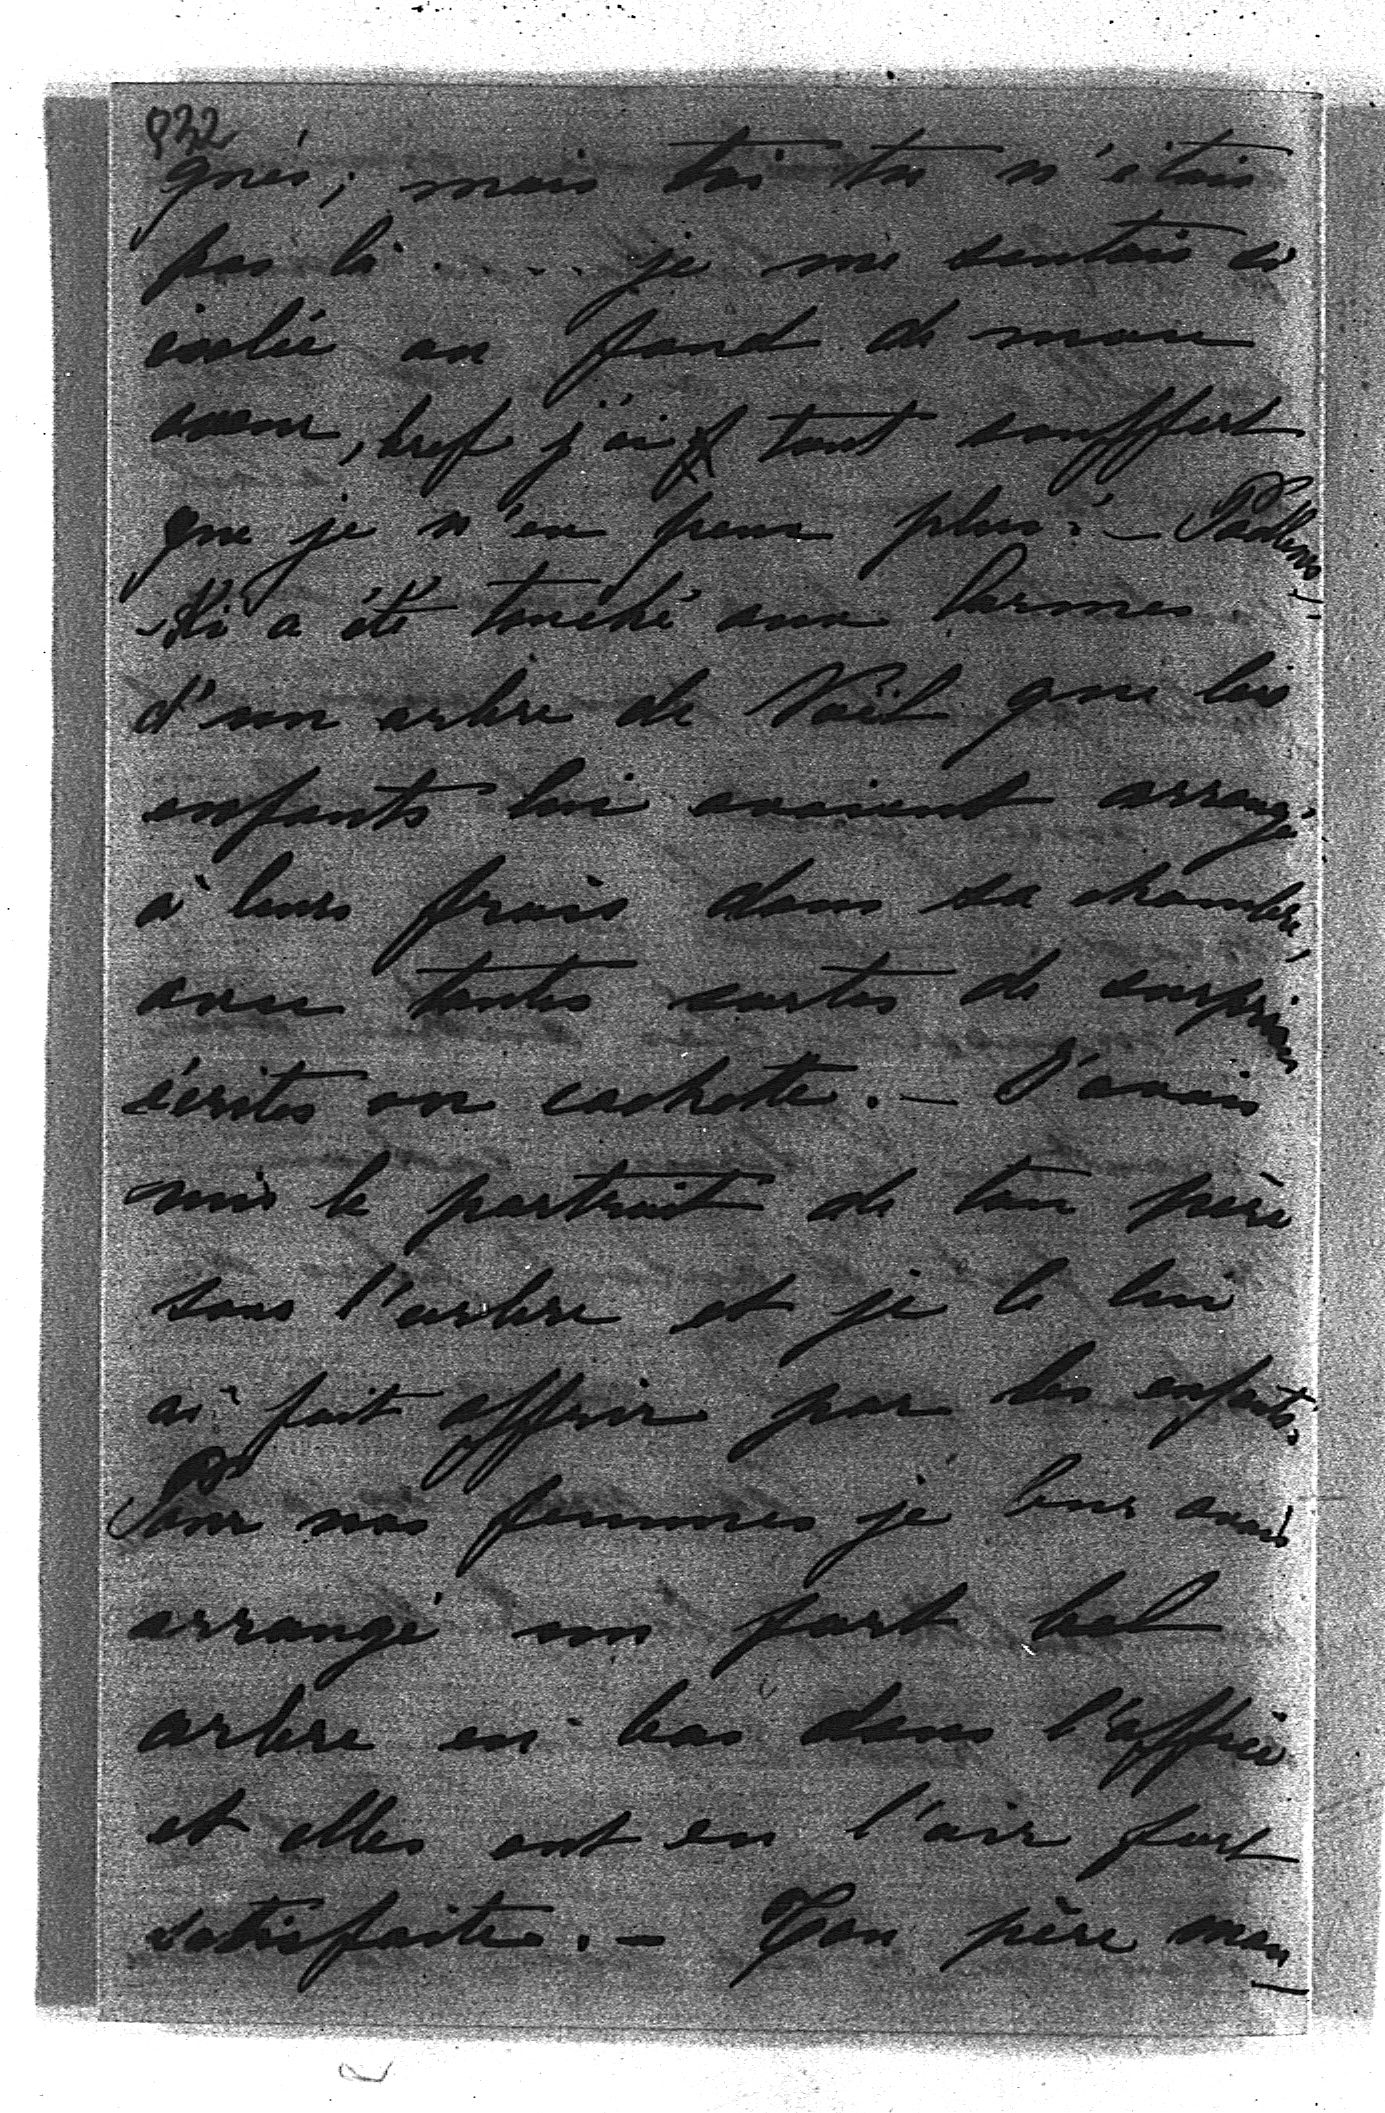 832
gnés; mais toi tu n'étais
pas là ..... je me sentais si
isolée au fond de mon
cœur, bref j'ai tant souffert
que je n'en peux plus. –
-ski a été touché aux larmes
d'un arbre de Noël que les
enfants lui avaient arrangé
à leurs frais dans sa chambre,
avec toutes sortes de surprises
écrites en cachette. – J'avais
mis le portrait de ton père
sous l'arbre et je le lui
ai fait offrir par les enfants.
Pour nos femmes je leur avais
arrangé un fort bel
arbre en bas dans l'office
et elles ont eu l'air fort
satisfaites. – Ton père mon